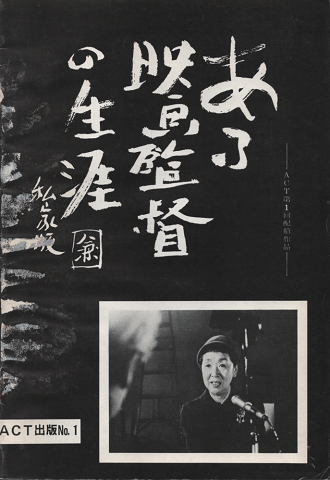 ある
映画監督
の生涯
私家版
ACT第1回配給作品
ACT出版No.1